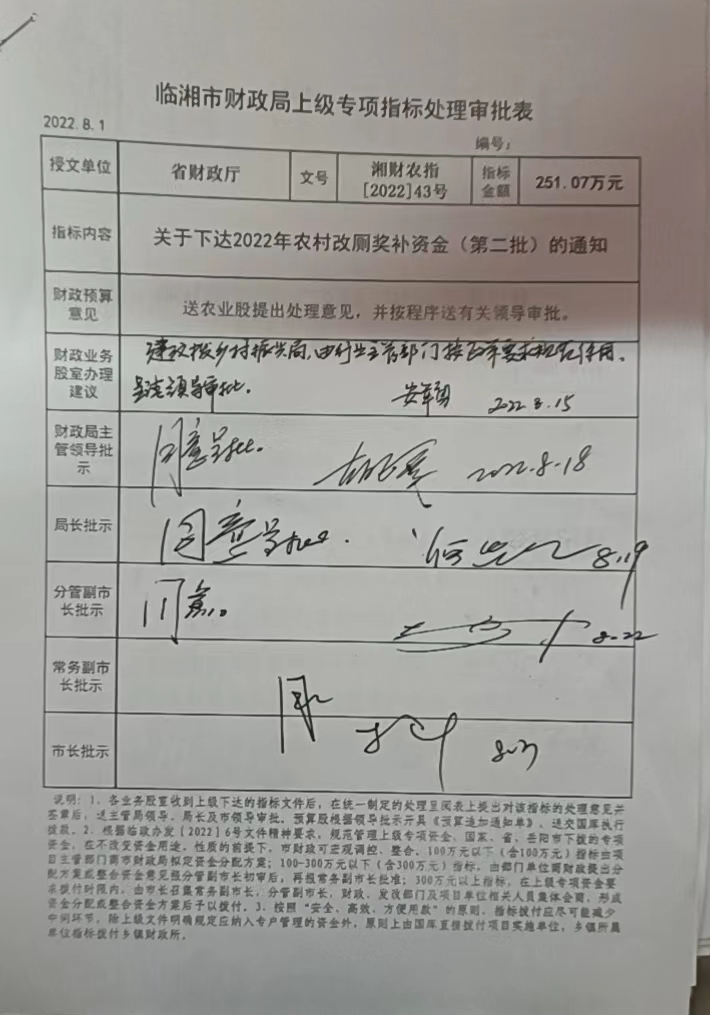 临湘市财政局上级专项指标处理审批表
2022.8.1
编号:
授文单位 省财政厅 文号 湘财农指[2022]43号 指标金额 251.07万元
指标内容 关于下达2022年农村改厕奖补资金(第二批)的通知
财政预算意见 送农业股提出处理意见,并按程序送有关领导审批。
财政业务股室办理建议 建议拨乡村振兴局,由行业主管部门按改革要求规范使用。
呈请领导审批。 2022.8.15
财政局主管领导批示 同意呈批。 2022.8.18
局长批示 同意呈批. 8.19
分管副市长批示 同意。 8-22
常务副市长批示 同意
市长批示
说明:1、各业务股室收到上级下达的指标文件后,在统一制定的处理呈阅表上提出对该指标的处理意见并
签章后,送主管局领导、局长及市领导审批。预算股根据领导批示开具《预算追加通知单》,送交国库执行
拨款。2、根据临政办发[2022]6号文件精神要求,规范管理上级专项资金,国家、省、岳阳市下拨的专项
资金,在不改变资金用途、性质的前提下,市财政可宏观调控、整合。100万元以下(含100万元)指标由项
目主管部门商市财政局拟定资金分配方案;100-300万元以下(含300万元)指标,由部门单位商财政提出分
配方案或整合资金意见报分管副市长初审后,再报常务副市长批准;300万元以上指标,在上级专项资金要
求拨付时限内,由市长召集常务副市长,分管副市长,财政、发改部门及项目单位相关人员集体会商,形成
资金分配或整合资金方案后予以拨付。3、按照“安全、高效、方便用款”的原则,指标拨付应尽可能减少
中间环节,除上级文件明确规定应纳入专户管理的资金外,原则上由国库直接拨付项目实施单位,乡镇所属
单位指标拨付乡镇财政所。